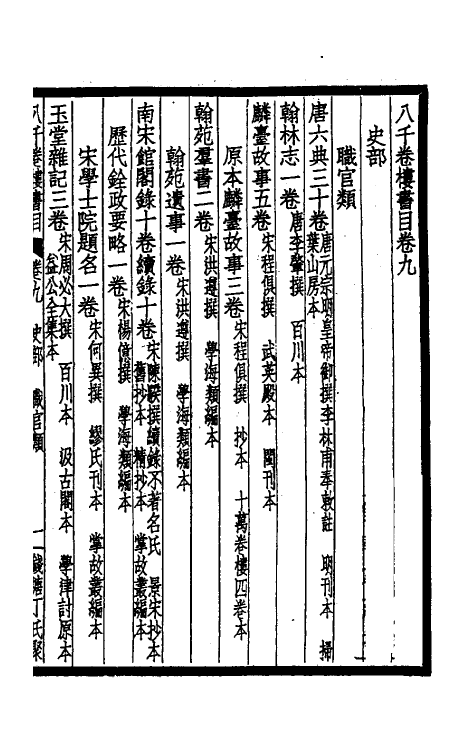 八千卷樓書目卷九
史部
職官類
唐六典三十卷唐元宗明皇帝御撰李林甫奉敕註 明刊本 掃
葉山房本
翰林志一卷唐李肇撰 百川本
麟臺故事五卷宋程俱撰 武英殿本 閩刊本
原本麟臺故事三卷宋程俱撰 抄本 十萬卷樓四卷本
翰苑羣書二卷宋洪遵撰 學海類編本
翰苑遺事一卷宋洪遵撰 學海類編本
南宋館閣錄十卷續錄十卷宋陳騤撰續錄不著名氏 景宋抄本
舊抄本 精抄本 掌故叢編本
歷代銓政要略一卷宋楊億撰 學海類編本
宋學士院題名一卷宋何異撰 繆氏刊本 掌故叢編本
玉堂雜記三卷宋周必大撰 百川本 汲古閣本 學津討原本
益公全集本
八千卷樓書目 卷九 史部 職官類 一 錢塘丁氏聚